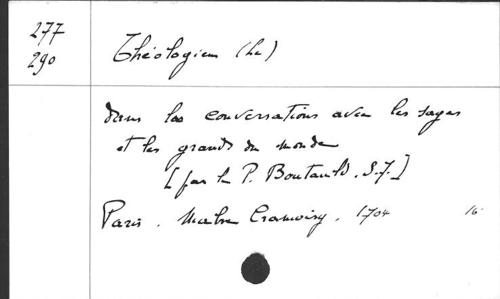 277
290
Théologien (Le)
dans les conversations avec les sages
et les grands du monde
[par le P. Boutauld. S.J.]
Paris. Mabre Cramoisy. 1704 16